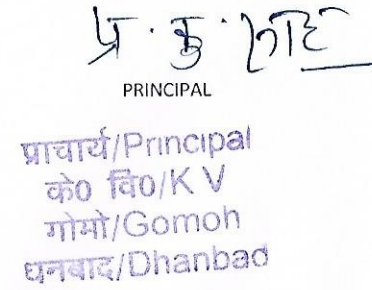 प्र. कु.
PRINCIPAL
प्राचार्य/Principal
के0 वि0/K V
गोमो/Gomoh
धनबाद/Dhanbad